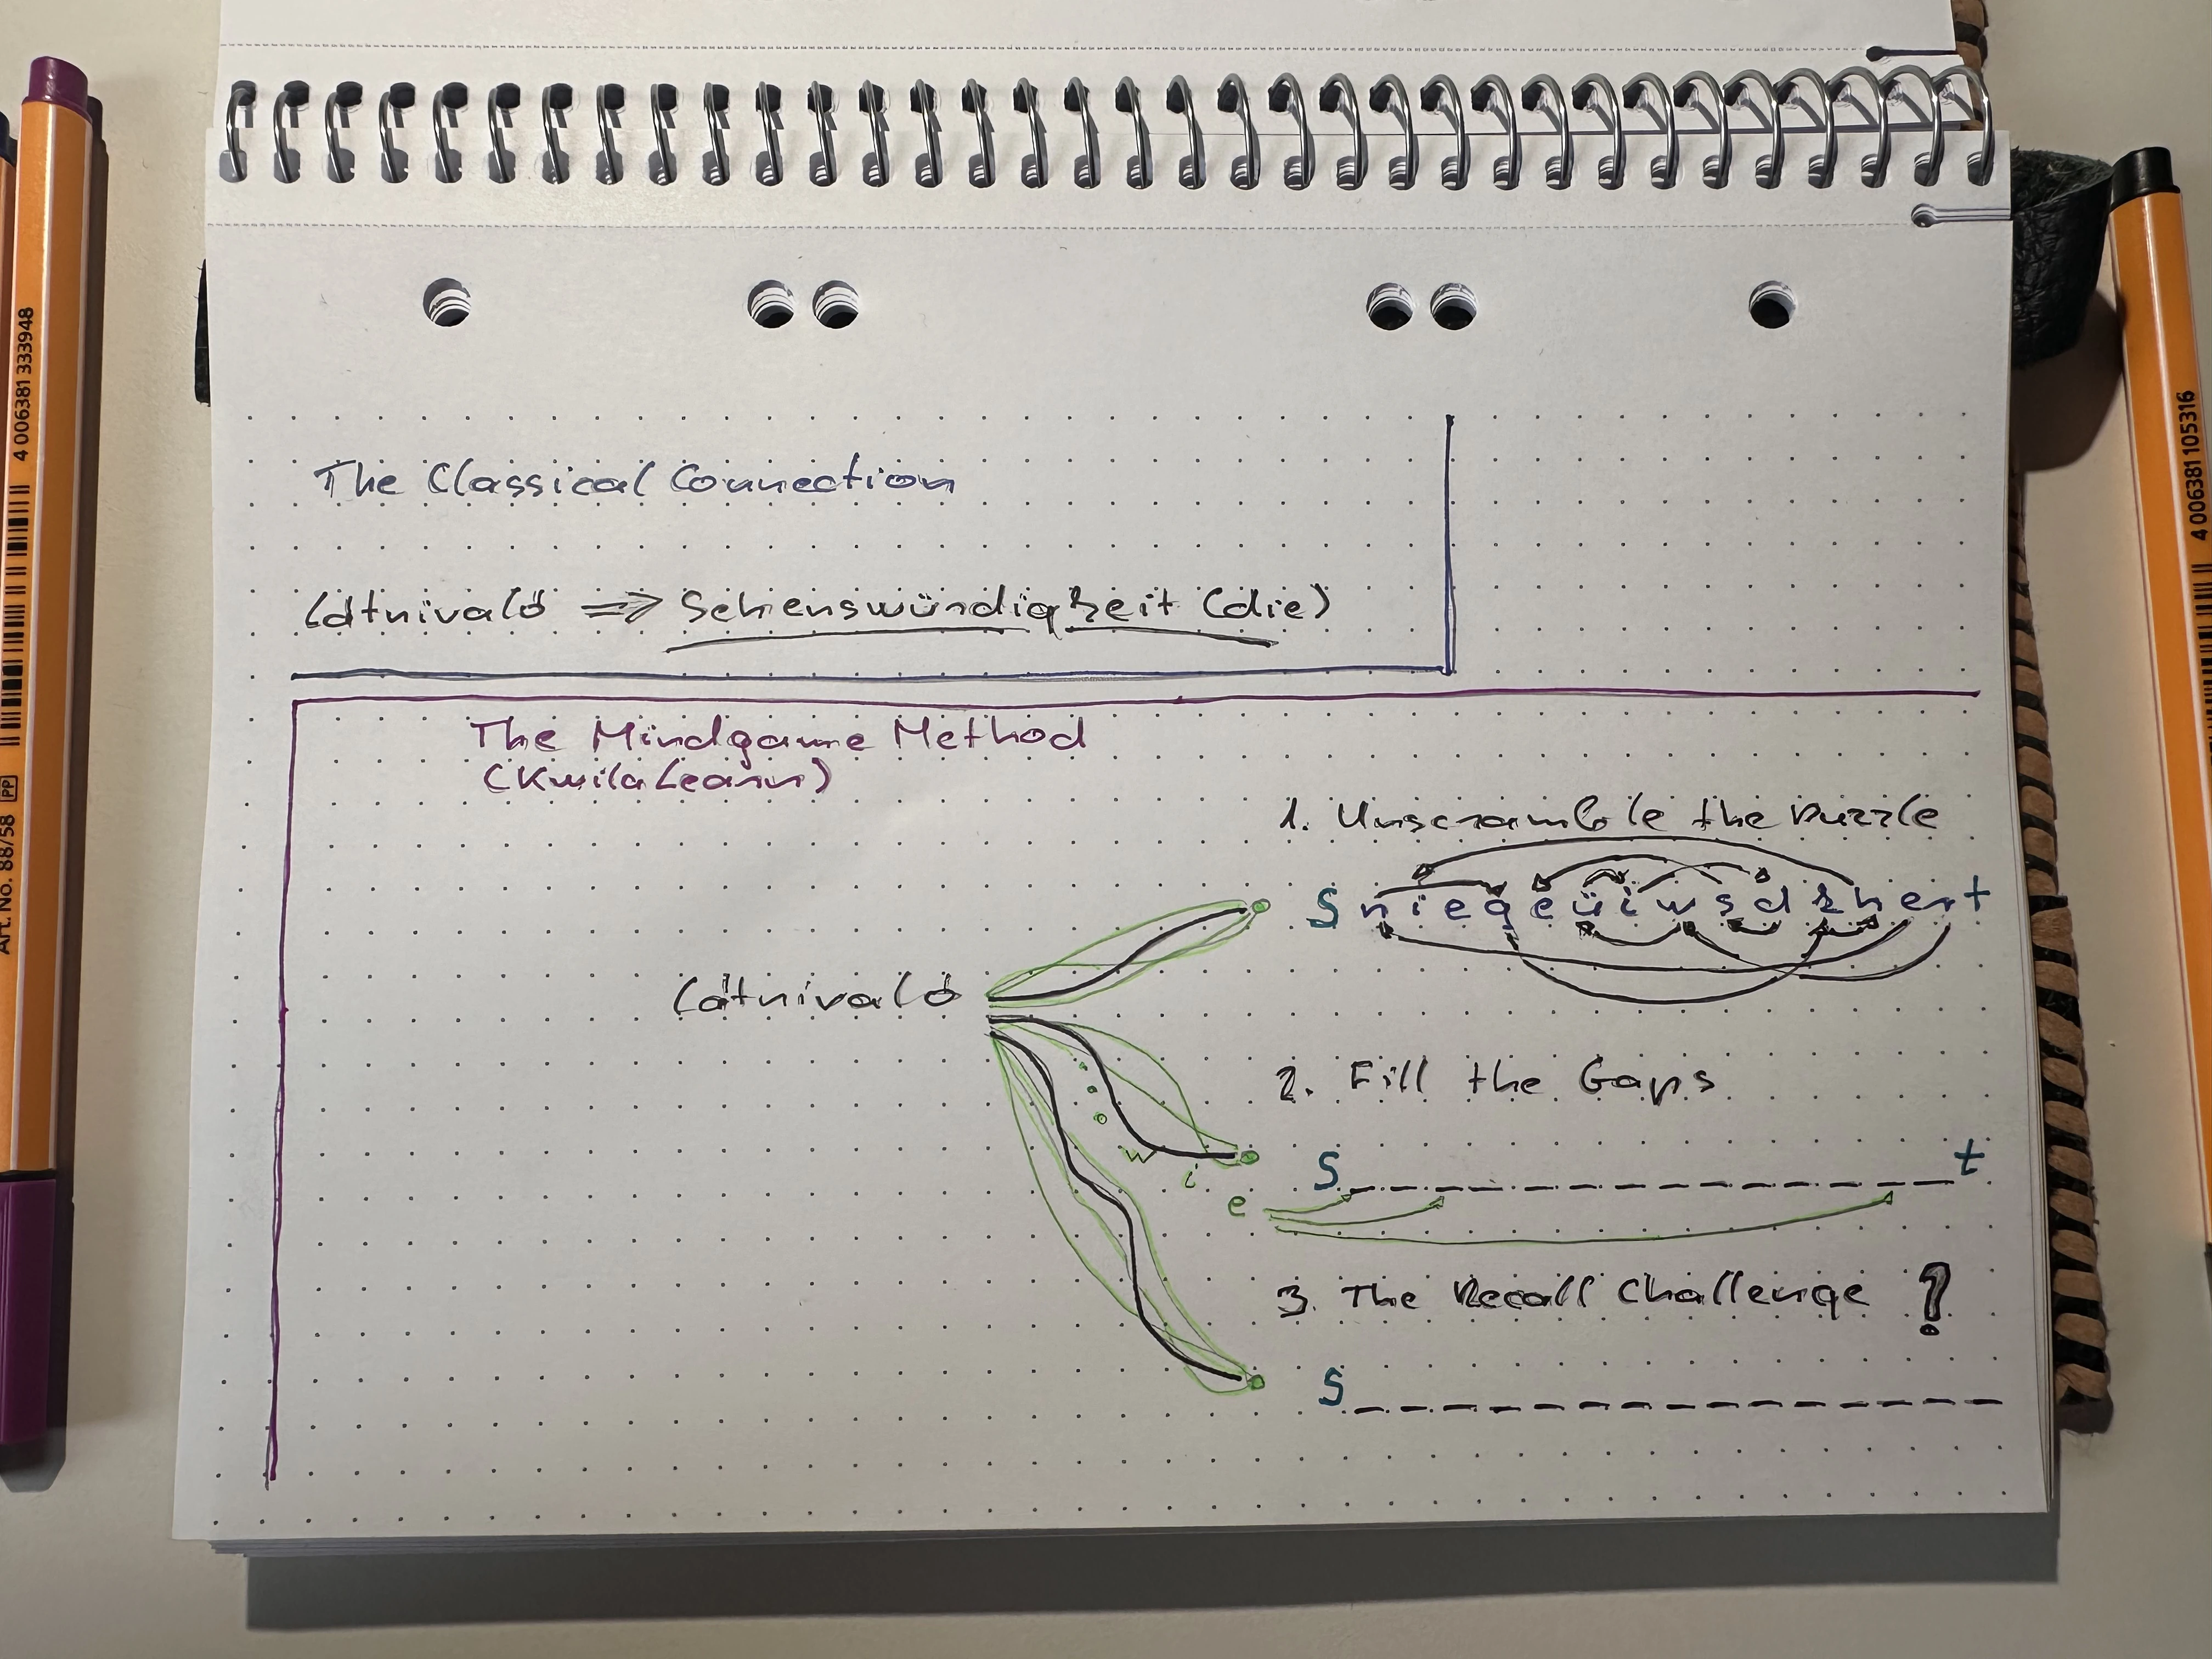 The Classical Connection
látnivaló => Sehenswürdigkeit (die)
The Mindgame Method
(KwilaLearn)
1. Unscramble the Puzzle
S n i e g e ü i w s d k h e r t
látnivaló
2. Fill the Gaps
S _ _ _ _ _ _ _ _ _ _ _ _ _ _ t
w i e
3. The Recall Challenge ?
S _ _ _ _ _ _ _ _ _ _ _ _ _ _ _
4 006381 333948
Art. No. 88/58 PP
4 006381 105316